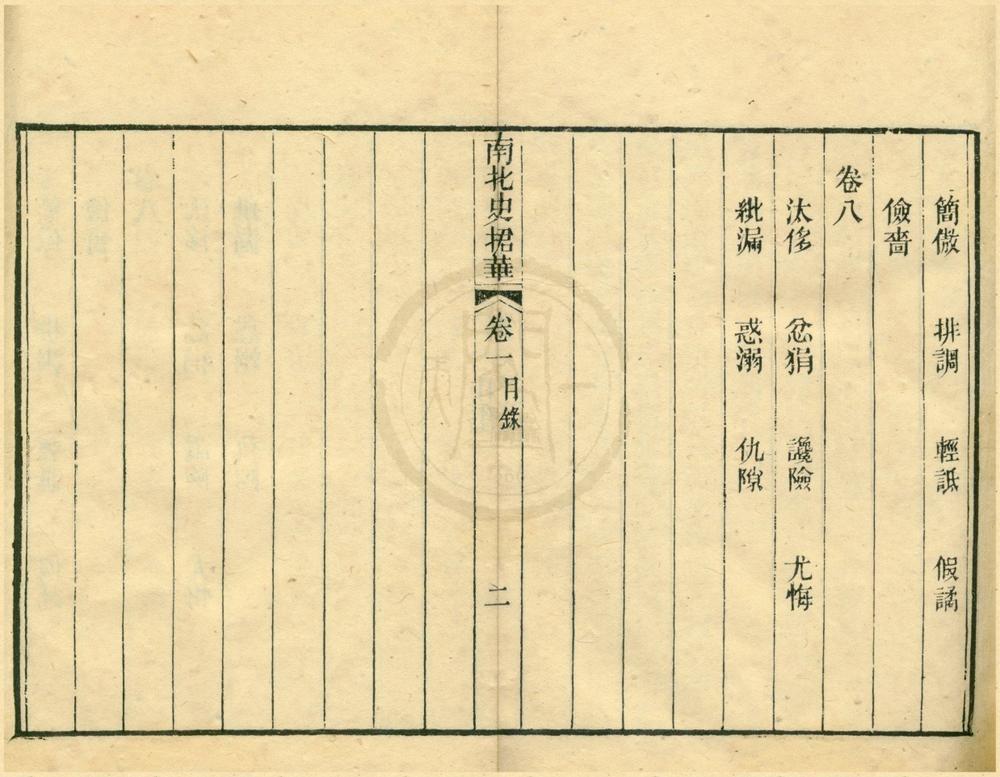 簡傲　排調　輕詆　假譎
儉嗇
卷八
汰侈　忿狷　讒險　尤悔
紕漏　惑溺　仇隙
南北史捃華　卷一　目錄　二